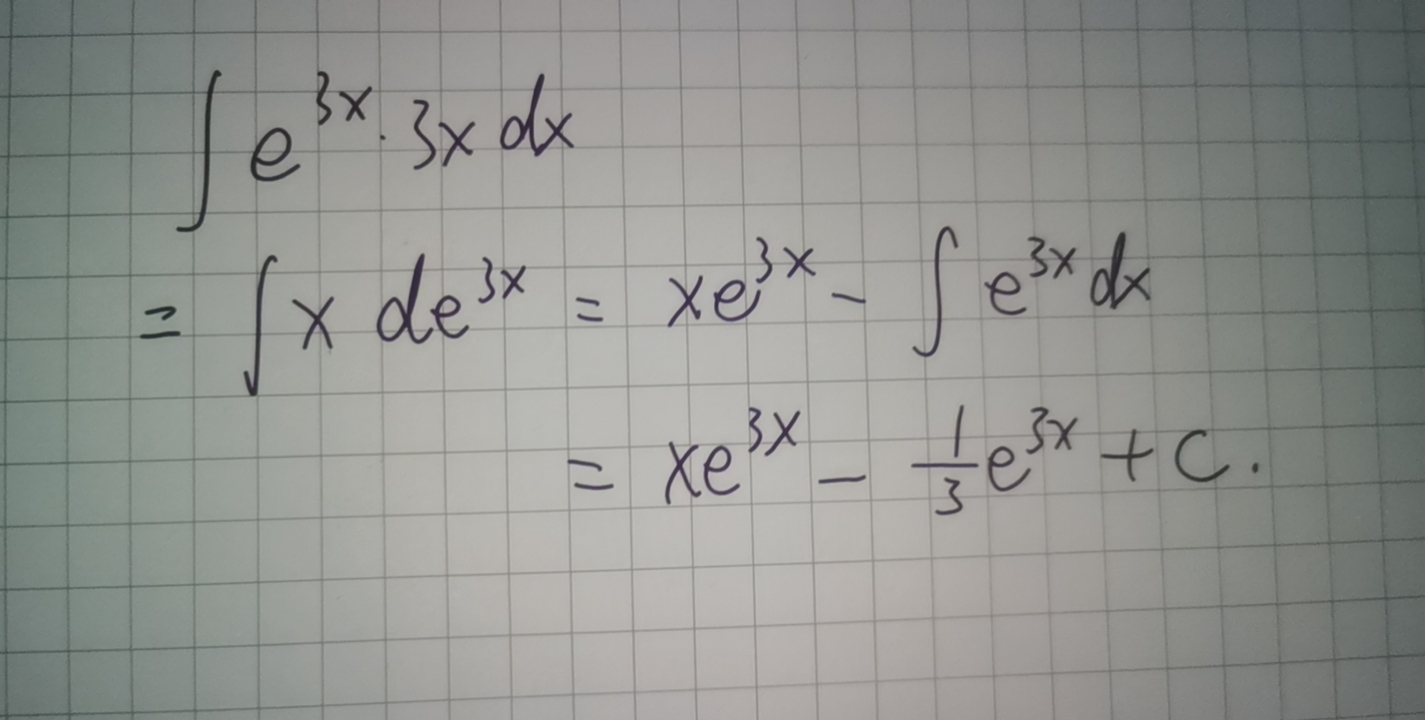 ∫ e^{3x} · 3x dx
= ∫ x de^{3x} = xe^{3x} - ∫ e^{3x} dx
= xe^{3x} - \frac{1}{3}e^{3x} + C.